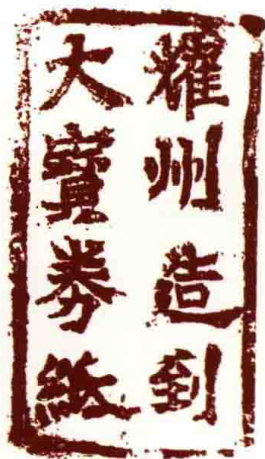 耀州造到
大寶券紙